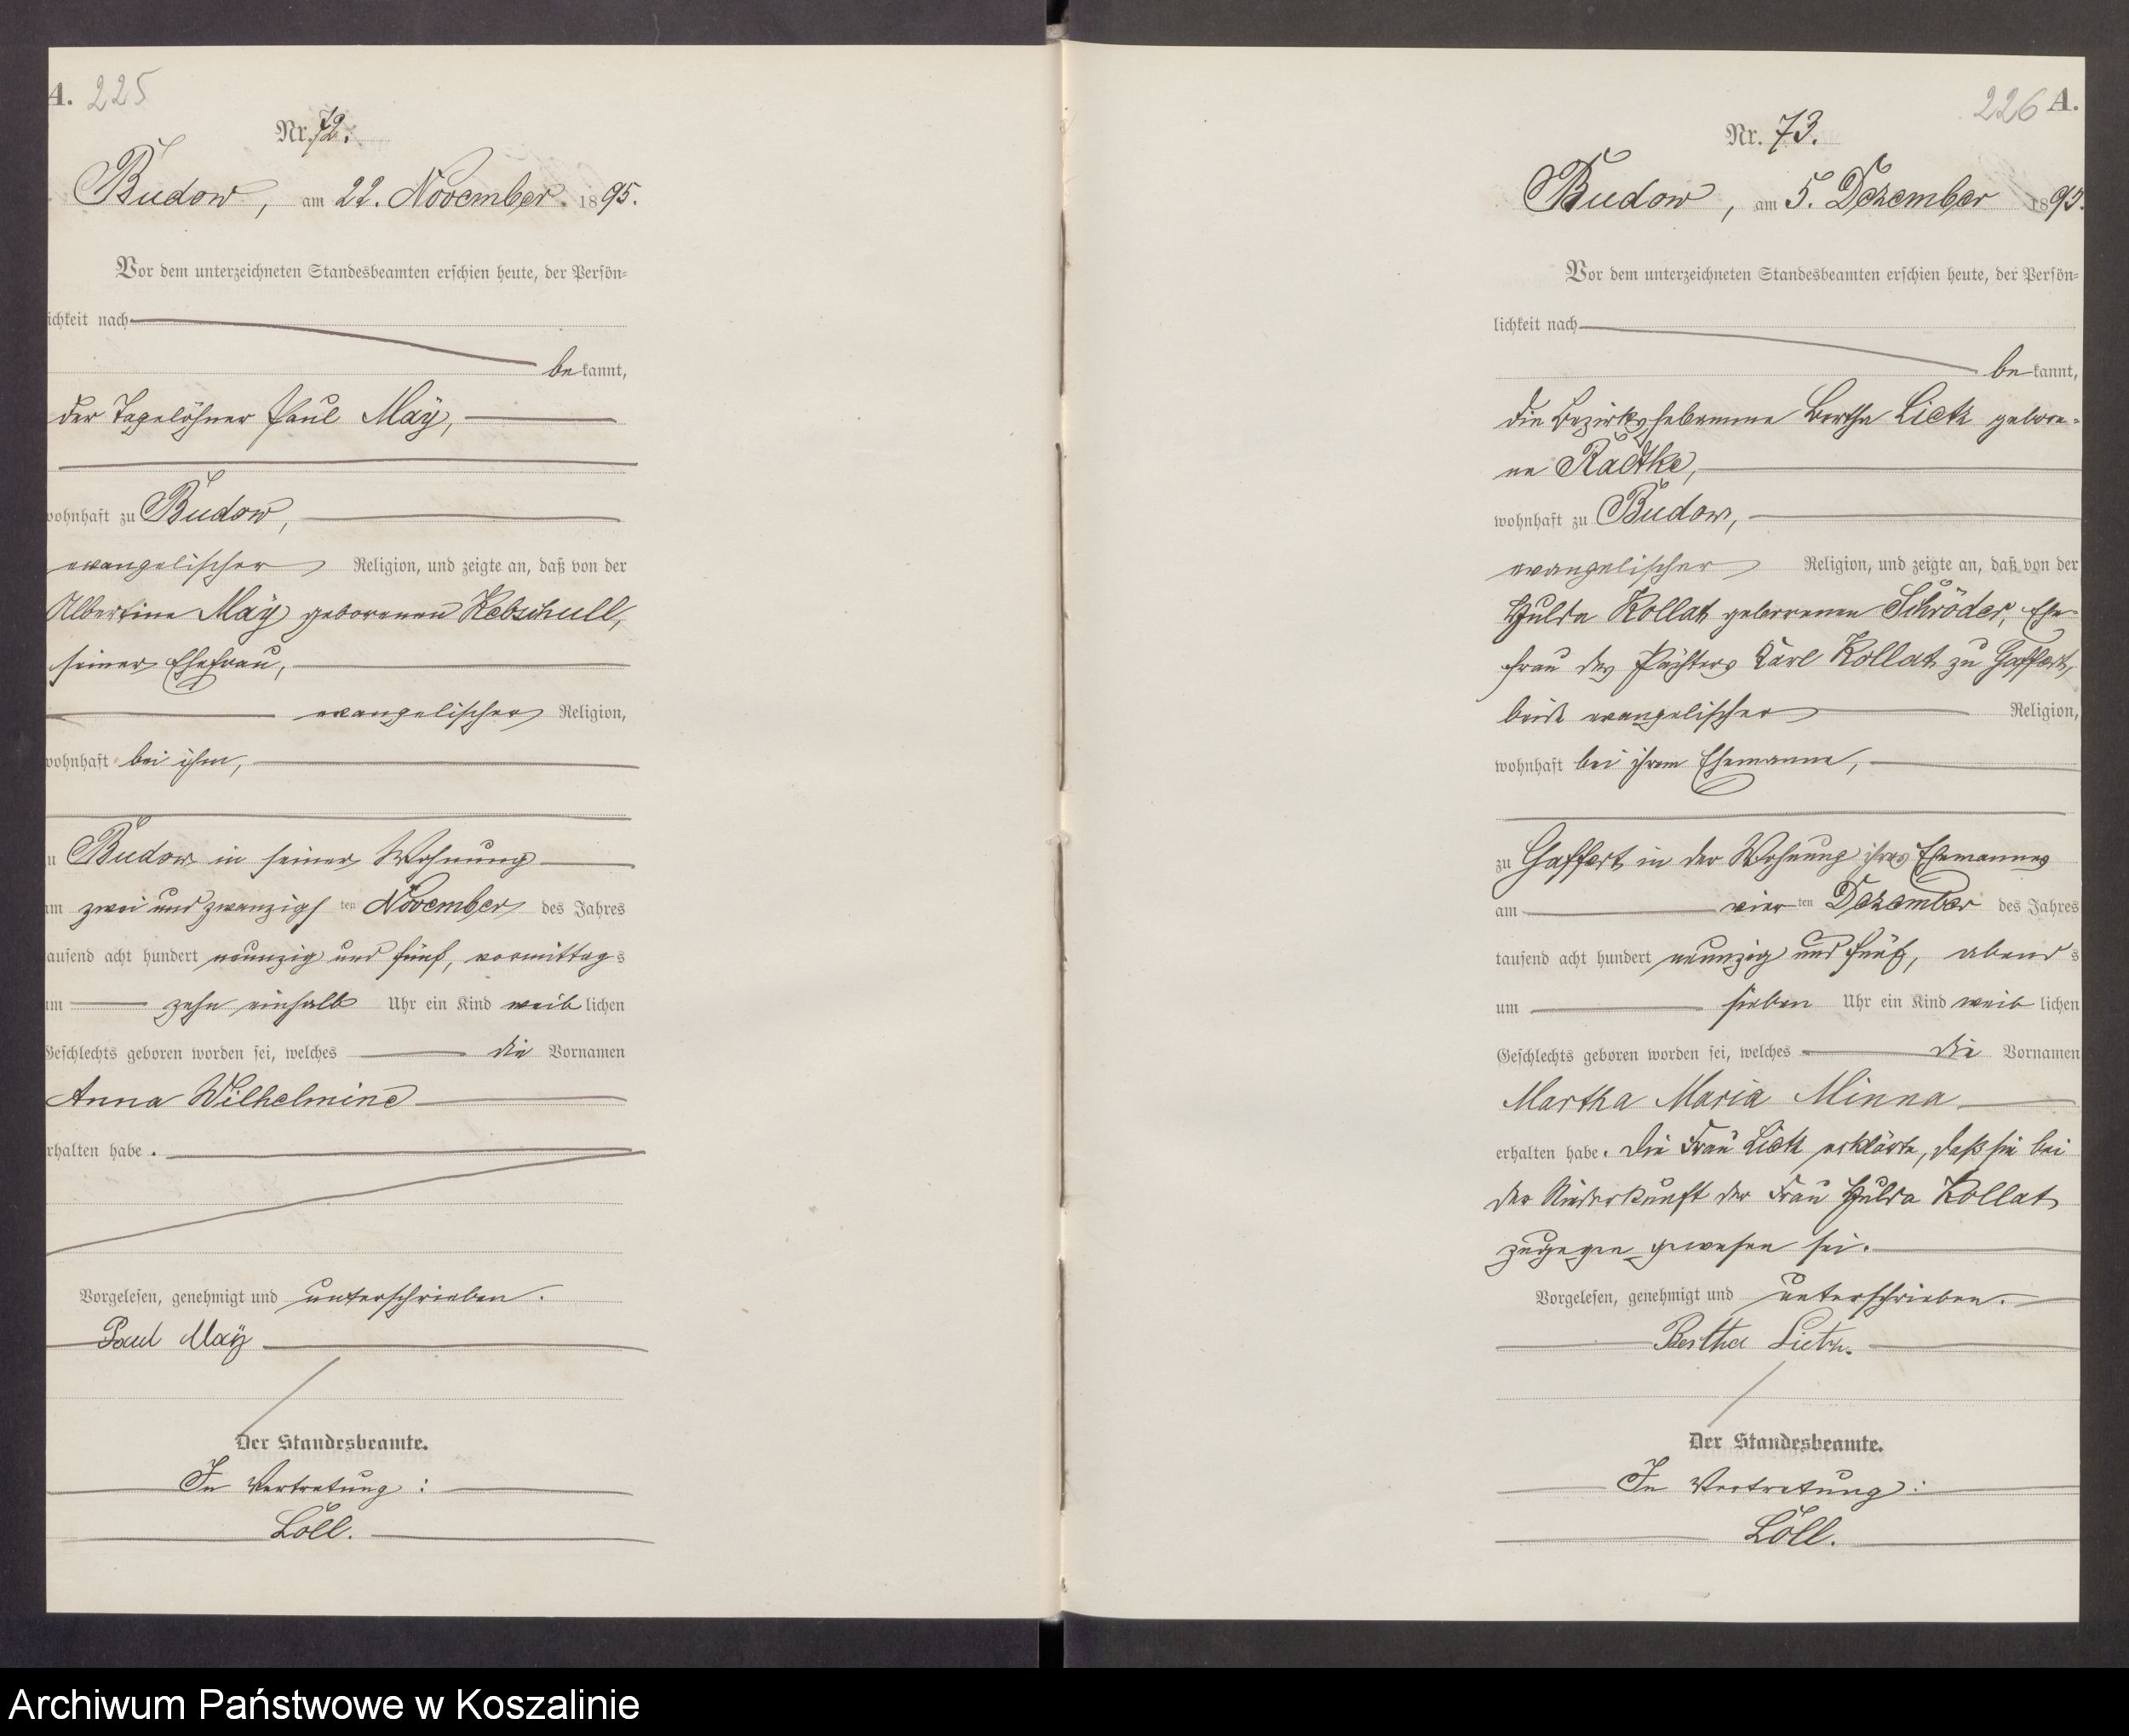 A. 225
Nr. 72.
Budow, am 22. November 1895.
Vor dem unterzeichneten Standesbeamten erschien heute, der Persön-
ichkeit nach
bekannt,
der Tagelöhner Paul May,
wohnhaft zu Budow,
evangelischer Religion, und zeigte an, daß von der
Albertine May geborenen Kebschull,
seiner Ehefrau,
evangelischer Religion,
wohnhaft bei ihm,
u Budow in seiner Wohnung
am zwei und zwanzigsten November des Jahres
tausend acht hundert neunzig und fünf, vormittags
um zehn einhalb Uhr ein Kind weiblichen
Geschlechts geboren worden sei, welches die Vornamen
Anna Wilhelmine
erhalten habe.
Vorgelesen, genehmigt und unterschrieben.
Paul May
Der Standesbeamte.
In Vertretung:
Löll.
226 A.
Nr. 73.
Budow, am 5. Dezember 1895.
Vor dem unterzeichneten Standesbeamten erschien heute, der Persön-
lichkeit nach
bekannt,
die Bezirkshebamme Bertha Lietz gebore-
ne Radtke,
wohnhaft zu Budow,
evangelischer Religion, und zeigte an, daß von der
Hulda Kollat geborenen Schröder, Ehe-
frau des Pächters Karl Kollat zu Gaffert,
beide evangelischer Religion,
wohnhaft bei ihrem Ehemanne,
zu Gaffert in der Wohnung ihres Ehemannes
am vierten Dezember des Jahres
tausend acht hundert neunzig und fünf, abends
um sieben Uhr ein Kind weiblichen
Geschlechts geboren worden sei, welches die Vornamen
Martha Maria Minna
erhalten habe. Die Frau Lietz erklärte, daß sie bei
der Niederkunft der Frau Hulda Kollat
zugegen gewesen sei.
Vorgelesen, genehmigt und unterschrieben.
Bertha Lietz.
Der Standesbeamte.
In Vertretung:
Löll.
Archiwum Państwowe w Koszalinie